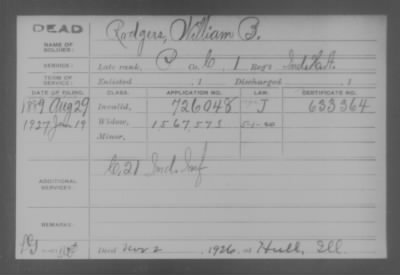 DEAD
NAME OF SOLDIER: Rodgers, William B.
SERVICE: Late rank, P Co. C, 1 Reg't Ind. H.A.
TERM OF SERVICE: Enlisted , 1 Discharged , 1
DATE OF FILING. CLASS. APPLICATION NO. LAW. CERTIFICATE NO.
1889 Aug 29 Invalid, 726048 J 633364
1927 Jan 19 Widow, 1567,573 5-1-20
Minor,
ADDITIONAL SERVICES: C, 21 Ind. Inf
REMARKS:
Died Nov 2, 1926, at Hull, Ill.